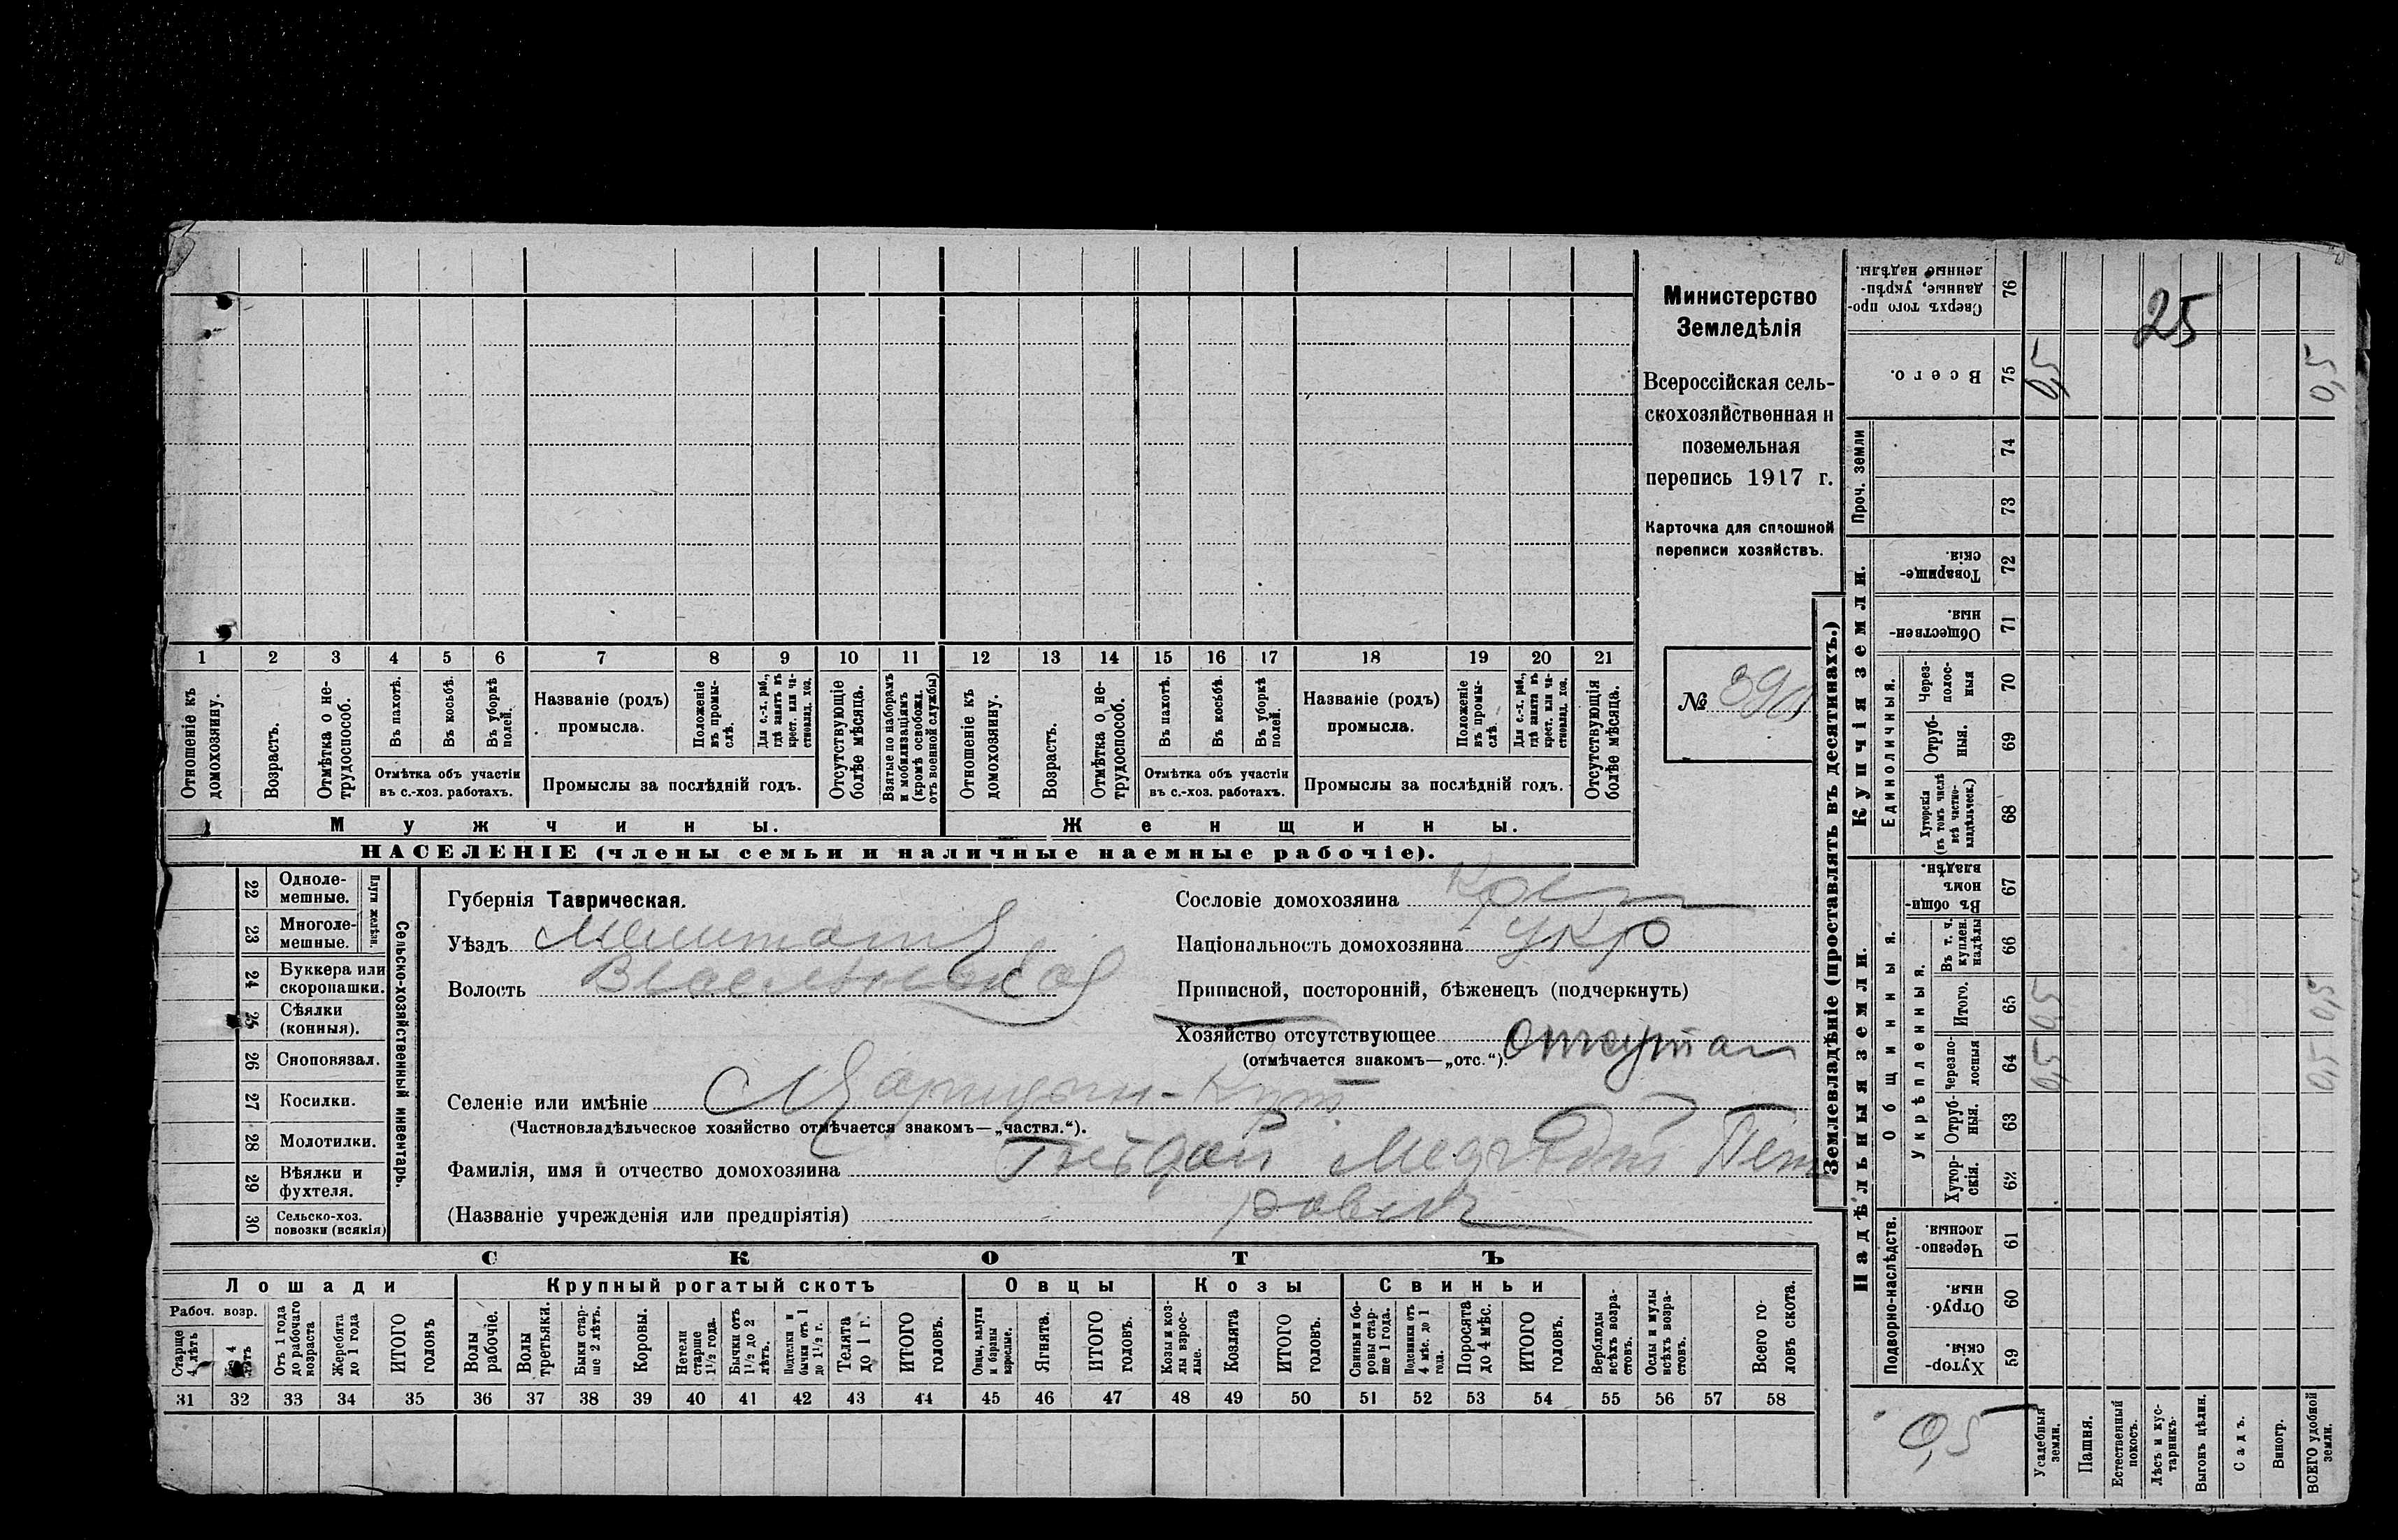 Министерство
Земледѣлія
Всероссійская сель-
скохозяйственная и
поземельная
перепись 1917 г.
Карточка для сплошной
переписи хозяйствъ.
№
1 2 3 4 5 6 7 8 9 10 11 12 13 14 15 16 17 18 19 20 21
Отношеніе къ домохозяину.
Возрастъ.
Отмѣтка о не-трудоспособ.
Въ пахотѣ.
Въ косьбѣ.
Въ уборкѣ полей.
Отмѣтка объ участіи
въ с.-хоз. работахъ.
Названіе (родъ)
промысла.
Положеніе въ промы-слѣ.
Для с.-х. раб., гдѣ занятъ въ крест. или ча-стновлад. хоз.
Промыслы за послѣдній годъ.
Отсутствующіе болѣе мѣсяца.
Взятые по наборамъ и мобилизаціямъ (кромѣ освобожд. отъ военной службы)
Отношеніе къ домохозяину.
Возрастъ.
Отмѣтка о не-трудоспособ.
Въ пахотѣ.
Въ косьбѣ.
Въ уборкѣ полей.
Отмѣтка объ участіи
въ с.-хоз. работахъ.
Названіе (родъ)
промысла.
Положеніе въ промы-слѣ.
Для с.-х. раб., гдѣ занята въ крест. или ча-стновлад. хоз.
Промыслы за послѣдній годъ.
Отсутствующія болѣе мѣсяца.
Мужчины.
Женщины.
НАСЕЛЕНІЕ (члены семьи и наличные наемные рабочіе).
22 Одноле-мешные.
23 Многоле-мешные.
Плуги желѣзн.
24 Буккера или скоропашки.
25 Сѣялки (конныя).
26 Сноповязал.
27 Косилки.
28 Молотилки.
29 Вѣялки и фухтеля.
30 Сельско-хоз. повозки (всякія)
Сельско-хозяйственный инвентарь.
Губернія Таврическая.
Уѣздъ
Волость
Сословіе домохозяина Крест
Національность домохозяина Укр
Приписной, посторонній, бѣженецъ (подчеркнуть)
Хозяйство отсутствующее Отсутст
(отмѣчается знакомъ—„отс.“).
Селеніе или имѣніе Царицын-Кут
(Частновладѣльческое хозяйство отмѣчается знакомъ—„частвл.“).
Фамилія, имя и отчество домохозяина Пет
(Названіе учрежденія или предпріятія) рович
СКОТЪ
Лошади
Крупный рогатый скотъ
Овцы
Козы
Свиньи
Рабоч. возр.
Старше 4 лѣтъ
Отъ 1 года до рабочаго возраста
Жеребята до 1 года
ИТОГО головъ
Волы рабочіе.
Волы третьяки.
Быки стар-ше 2 лѣтъ.
Коровы.
Нетели старше 1½ года.
Бычки отъ 1½ до 2 лѣтъ.
Подтелки и бычки отъ 1 до 1½ г.
Телята до 1 г.
ИТОГО головъ.
Овцы, валухи и бараны взрослые.
Ягнята.
ИТОГО головъ.
Козы и коз-лы взрос-лые.
Козлята
ИТОГО головъ.
Свиньи и бо-ровы стар-ше 1 года.
Подсвинки отъ 4 мѣс. до 1 года.
Поросята до 4 мѣс.
ИТОГО головъ.
Верблюды всѣхъ возра-стовъ.
Ослы и мулы всѣхъ возра-стовъ.
Всего го-ловъ скота.
31 32 33 34 35 36 37 38 39 40 41 42 43 44 45 46 47 48 49 50 51 52 53 54 55 56 57 58
Землевладѣніе (проставлять въ десятинахъ.)
Купчія земли.
Надѣльныя земли.
Проч. земли
Единоличныя.
Общинныя.
Укрѣпленныя.
Подворно-наслѣдств.
76 Сверхъ того про-данные, укрѣп-ленные надѣлы.
25
75 Всего. 0,5 0,5
74
73
72 Товарище-скія.
71 Обществен-ныя.
70 Через-полос-ныя
69 Отруб-ныя.
68 Хуторскія (въ томъ числѣ всѣ частно-владѣльческ.)
67 Въ общин-номъ владѣн.
66 Въ т. ч. куплен. надѣлы
65 Итого. 0,5 0,5
64 Черезпо-лосныя 0,5 0,5
63 Отруб-ныя.
62 Хутор-скія.
61 Черезпо-лосныя.
60 Отруб-ныя.
59 Хутор-скія.
0,5
Усадебныя земли.
Пашня.
Естественный покосъ.
Лѣсъ и кус-тарникъ.
Выгонъ цѣлин.
Садъ.
Виногр.
ВСЕГО удобной земли.